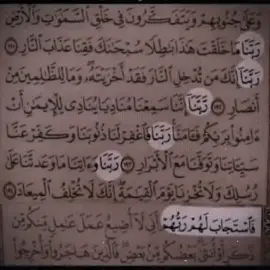 وَعَلَىٰ جُنُوبِهِمْ وَيَتَفَكَّرُونَ فِي خَلْقِ السَّمَٰوَٰتِ وَالْأَرْضِ
رَبَّنَا مَا خَلَقْتَ هَٰذَا بَٰطِلًا سُبْحَٰنَكَ فَقِنَا عَذَابَ النَّارِ ﴿١٩١﴾
رَبَّنَا إِنَّكَ مَن تُدْخِلِ النَّارَ فَقَدْ أَخْزَيْتَهُۥ وَمَا لِلظَّٰلِمِينَ مِنْ
أَنصَارٍ ﴿١٩٢﴾ رَّبَّنَا إِنَّنَا سَمِعْنَا مُنَادِيًا يُنَادِي لِلْإِيمَٰنِ أَنْ
ءَامِنُوا بِرَبِّكُمْ فَـَٔامَنَّا رَبَّنَا فَاغْفِرْ لَنَا ذُنُوبَنَا وَكَفِّرْ عَنَّا
سَيِّـَٔاتِنَا وَتَوَفَّنَا مَعَ الْأَبْرَارِ ﴿١٩٣﴾ رَبَّنَا وَءَاتِنَا مَا وَعَدتَّنَا عَلَىٰ
رُسُلِكَ وَلَا تُخْزِنَا يَوْمَ الْقِيَٰمَةِ إِنَّكَ لَا تُخْلِفُ الْمِيعَادَ ﴿١٩٤﴾
فَاسْتَجَابَ لَهُمْ رَبُّهُمْ أَنِّي لَا أُضِيعُ عَمَلَ عَٰمِلٍ مِّنكُم مِّن
ذَكَرٍ أَوْ أُنثَىٰ بَعْضُكُم مِّن بَعْضٍ فَالَّذِينَ هَاجَرُوا وَأُخْرِجُوا